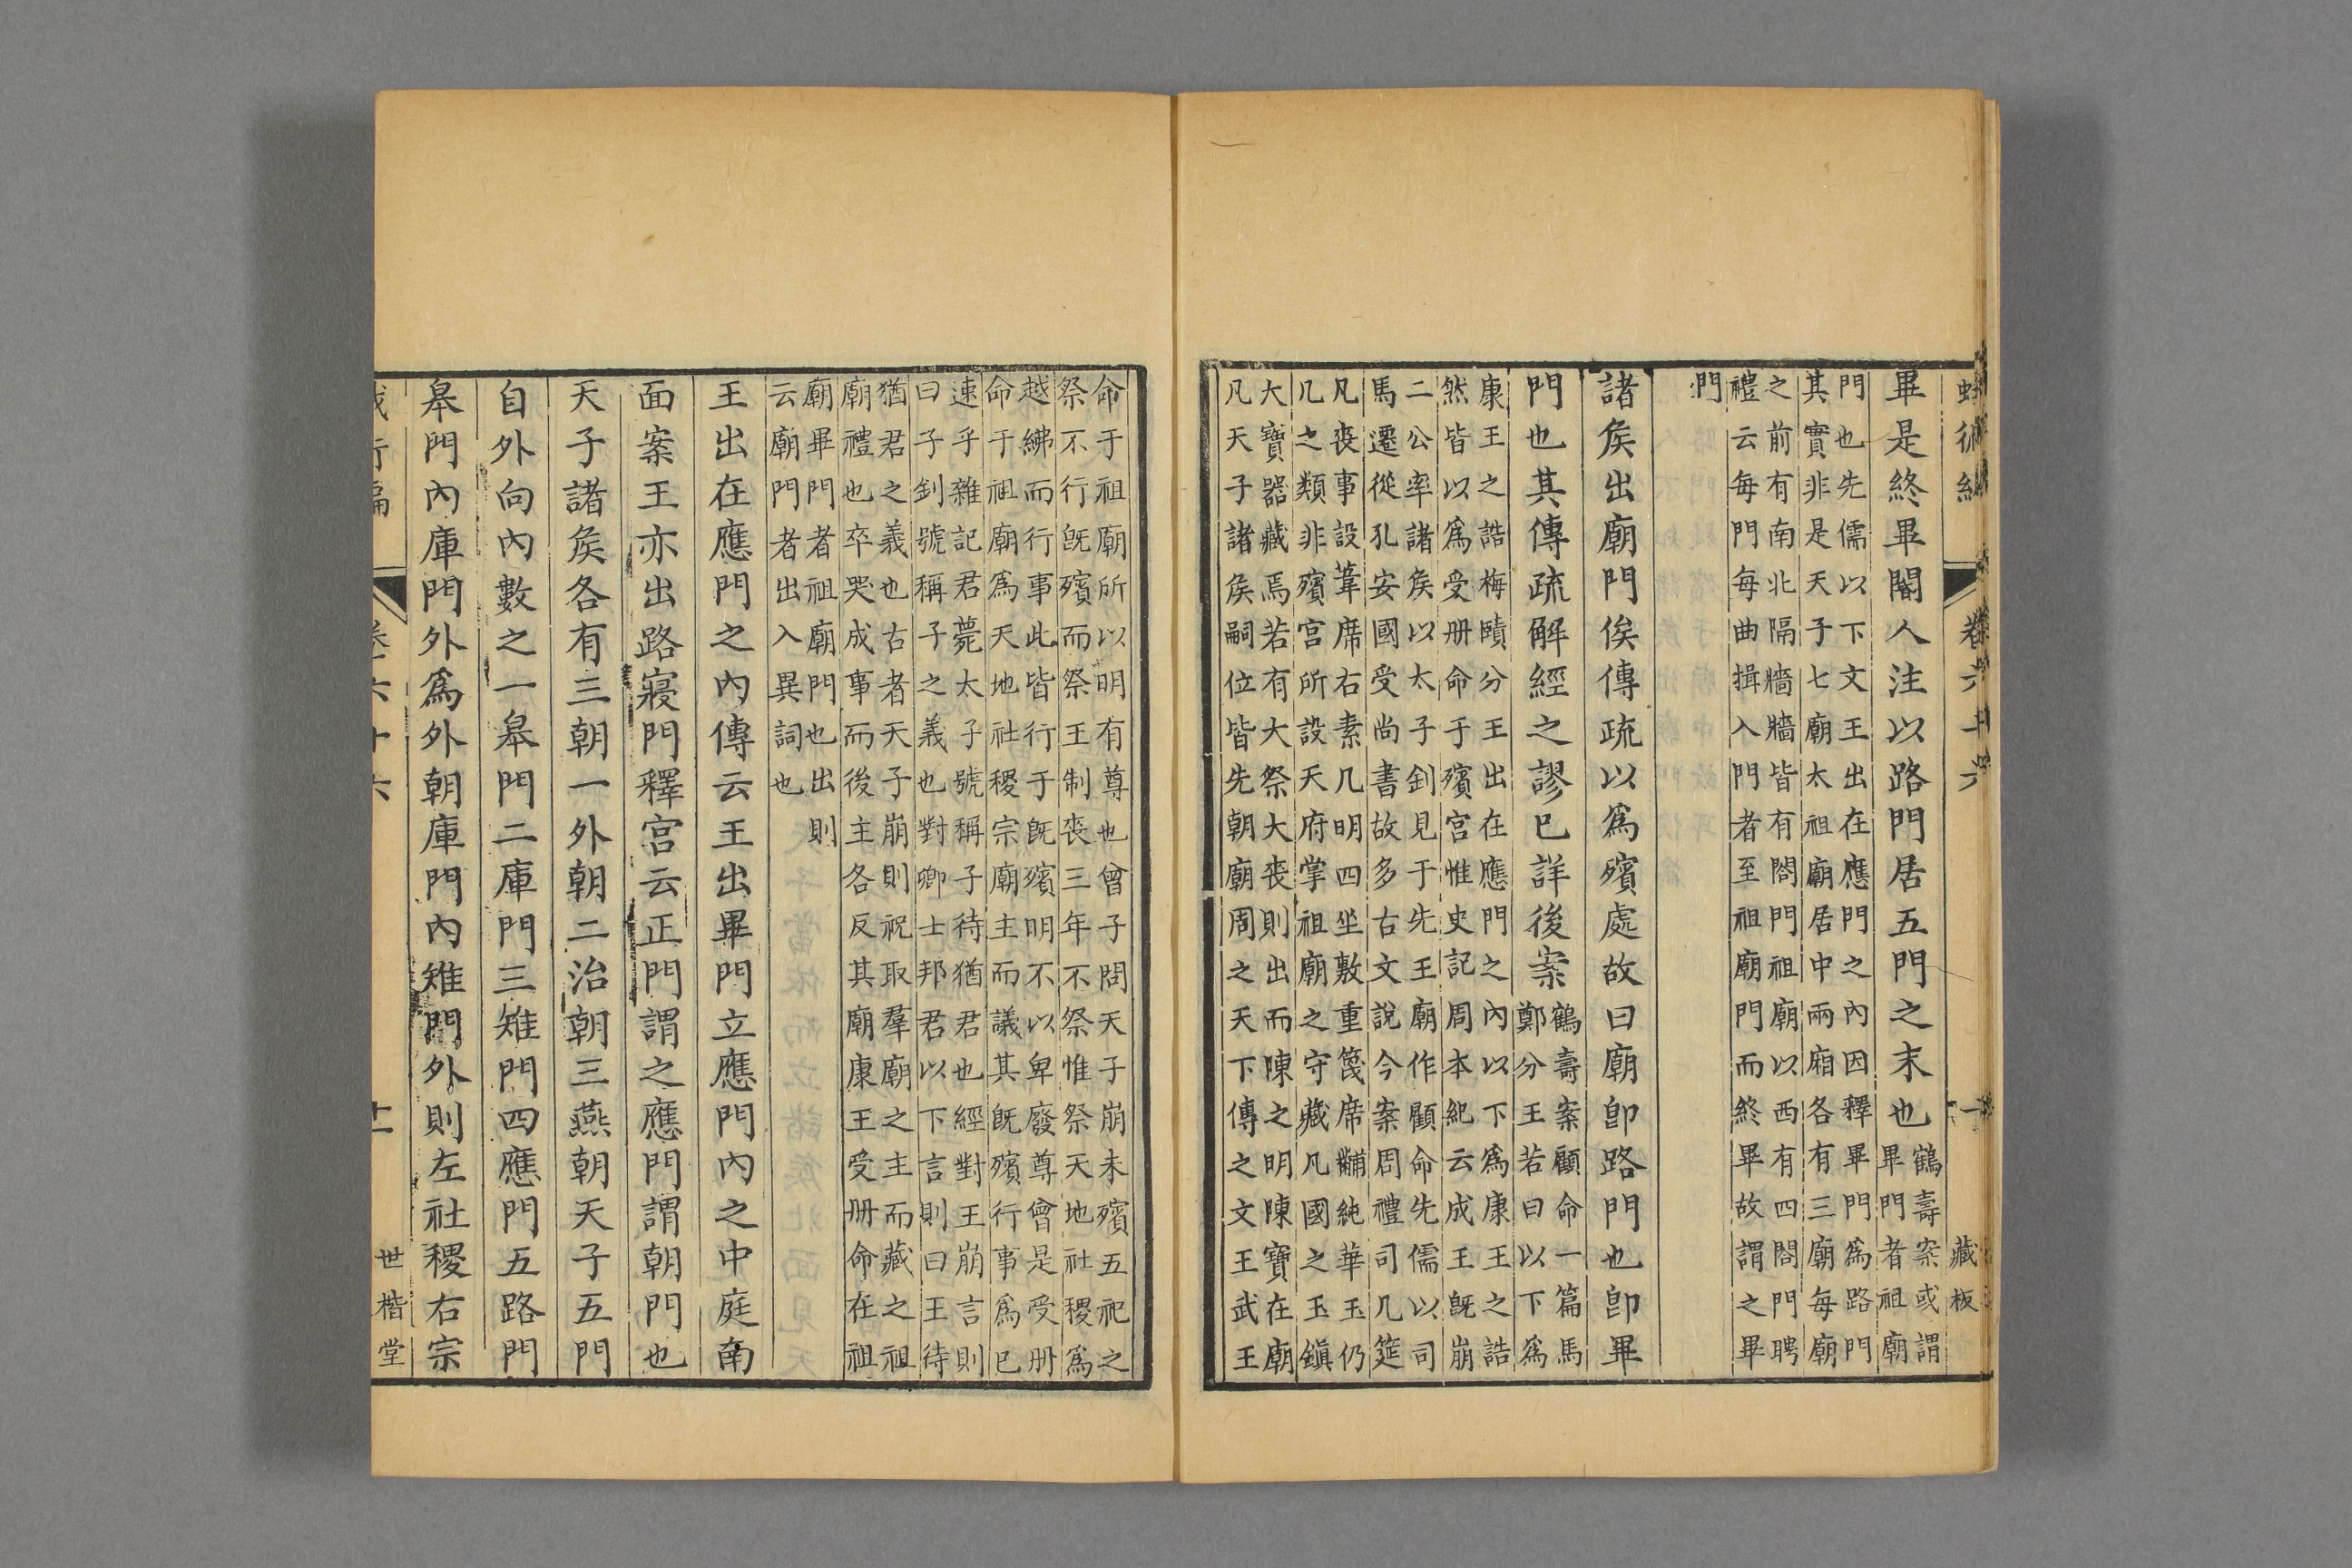 蛾術編
卷六十六
藏板
畢是終畢閽人注以路門居五門之末也鶴壽案或謂
畢門者祖廟
門也先儒以下文王出在應門之內因釋畢門爲路門
其實非是天子七廟太祖廟居中兩廂各有三廟每廟
之前有南北隔牆牆皆有閤門祖廟以西有四閤門聘
禮云每門每曲揖入門者至祖廟門而終畢故謂之畢
門
諸矦出廟門俟傳疏以爲殯處故曰廟卽路門也卽畢
門也其傳疏解經之謬巳詳後案鶴壽案顧命一篇馬
鄭分王若曰以下爲
康王之誥梅賾分王出在應門之內以下爲康王之誥
然皆以爲受册命于殯宮惟史記周本紀云成王旣崩
二公率諸矦以太子釗見于先王廟作顧命先儒以司
馬遷從孔安國受尚書故多古文說今案周禮司几筵
凡喪事設葦席右素几明四坐敷重篾席黼純華玉仍
几之類非殯宮所設天府掌祖廟之守藏凡國之玉鎭
大寶器藏焉若有大祭大喪則出而陳之明陳寶在廟
凡天子諸矦嗣位皆先朝廟周之天下傳之文王武王
命于祖廟所以明有尊也曾子問天子崩未殯五祀之
祭不行旣殯而祭王制喪三年不祭惟祭天地社稷爲
越紼而行事此皆行于旣殯明不以卑廢尊曾是受册
命于祖廟爲天地社稷宗廟主而議其旣殯行事爲巳
速乎雜記君薨太子號稱子待猶君也經對王崩言則
曰子釗號稱子之義也對卿士邦君以下言則曰王待
猶君之義也古者天子崩則祝取羣廟之主而藏之祖
廟禮也卒哭成事而後主各反其廟康王受册命在祖
廟畢門者祖廟門也出則
云廟門者出入異詞也
王出在應門之內傳云王出畢門立應門內之中庭南
面案王亦出路寢門釋宮云正門謂之應門謂朝門也
天子諸矦各有三朝一外朝二治朝三燕朝天子五門
自外向內數之一皋門二庫門三雉門四應門五路門
皋門內庫門外爲外朝庫門內雉門外則左社稷右宗
世楷堂